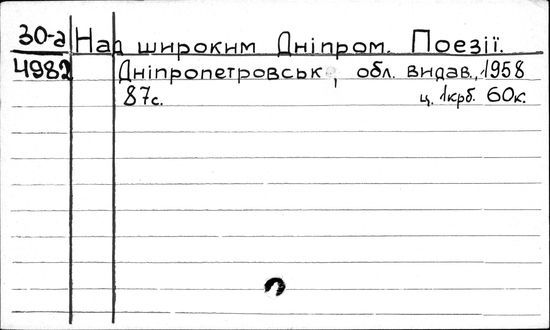 30-а Над широким Дніпром. Поезії.
4982 Дніпропетровськ, обл. видав., 1958
87с. ц. 1крб. 60к.